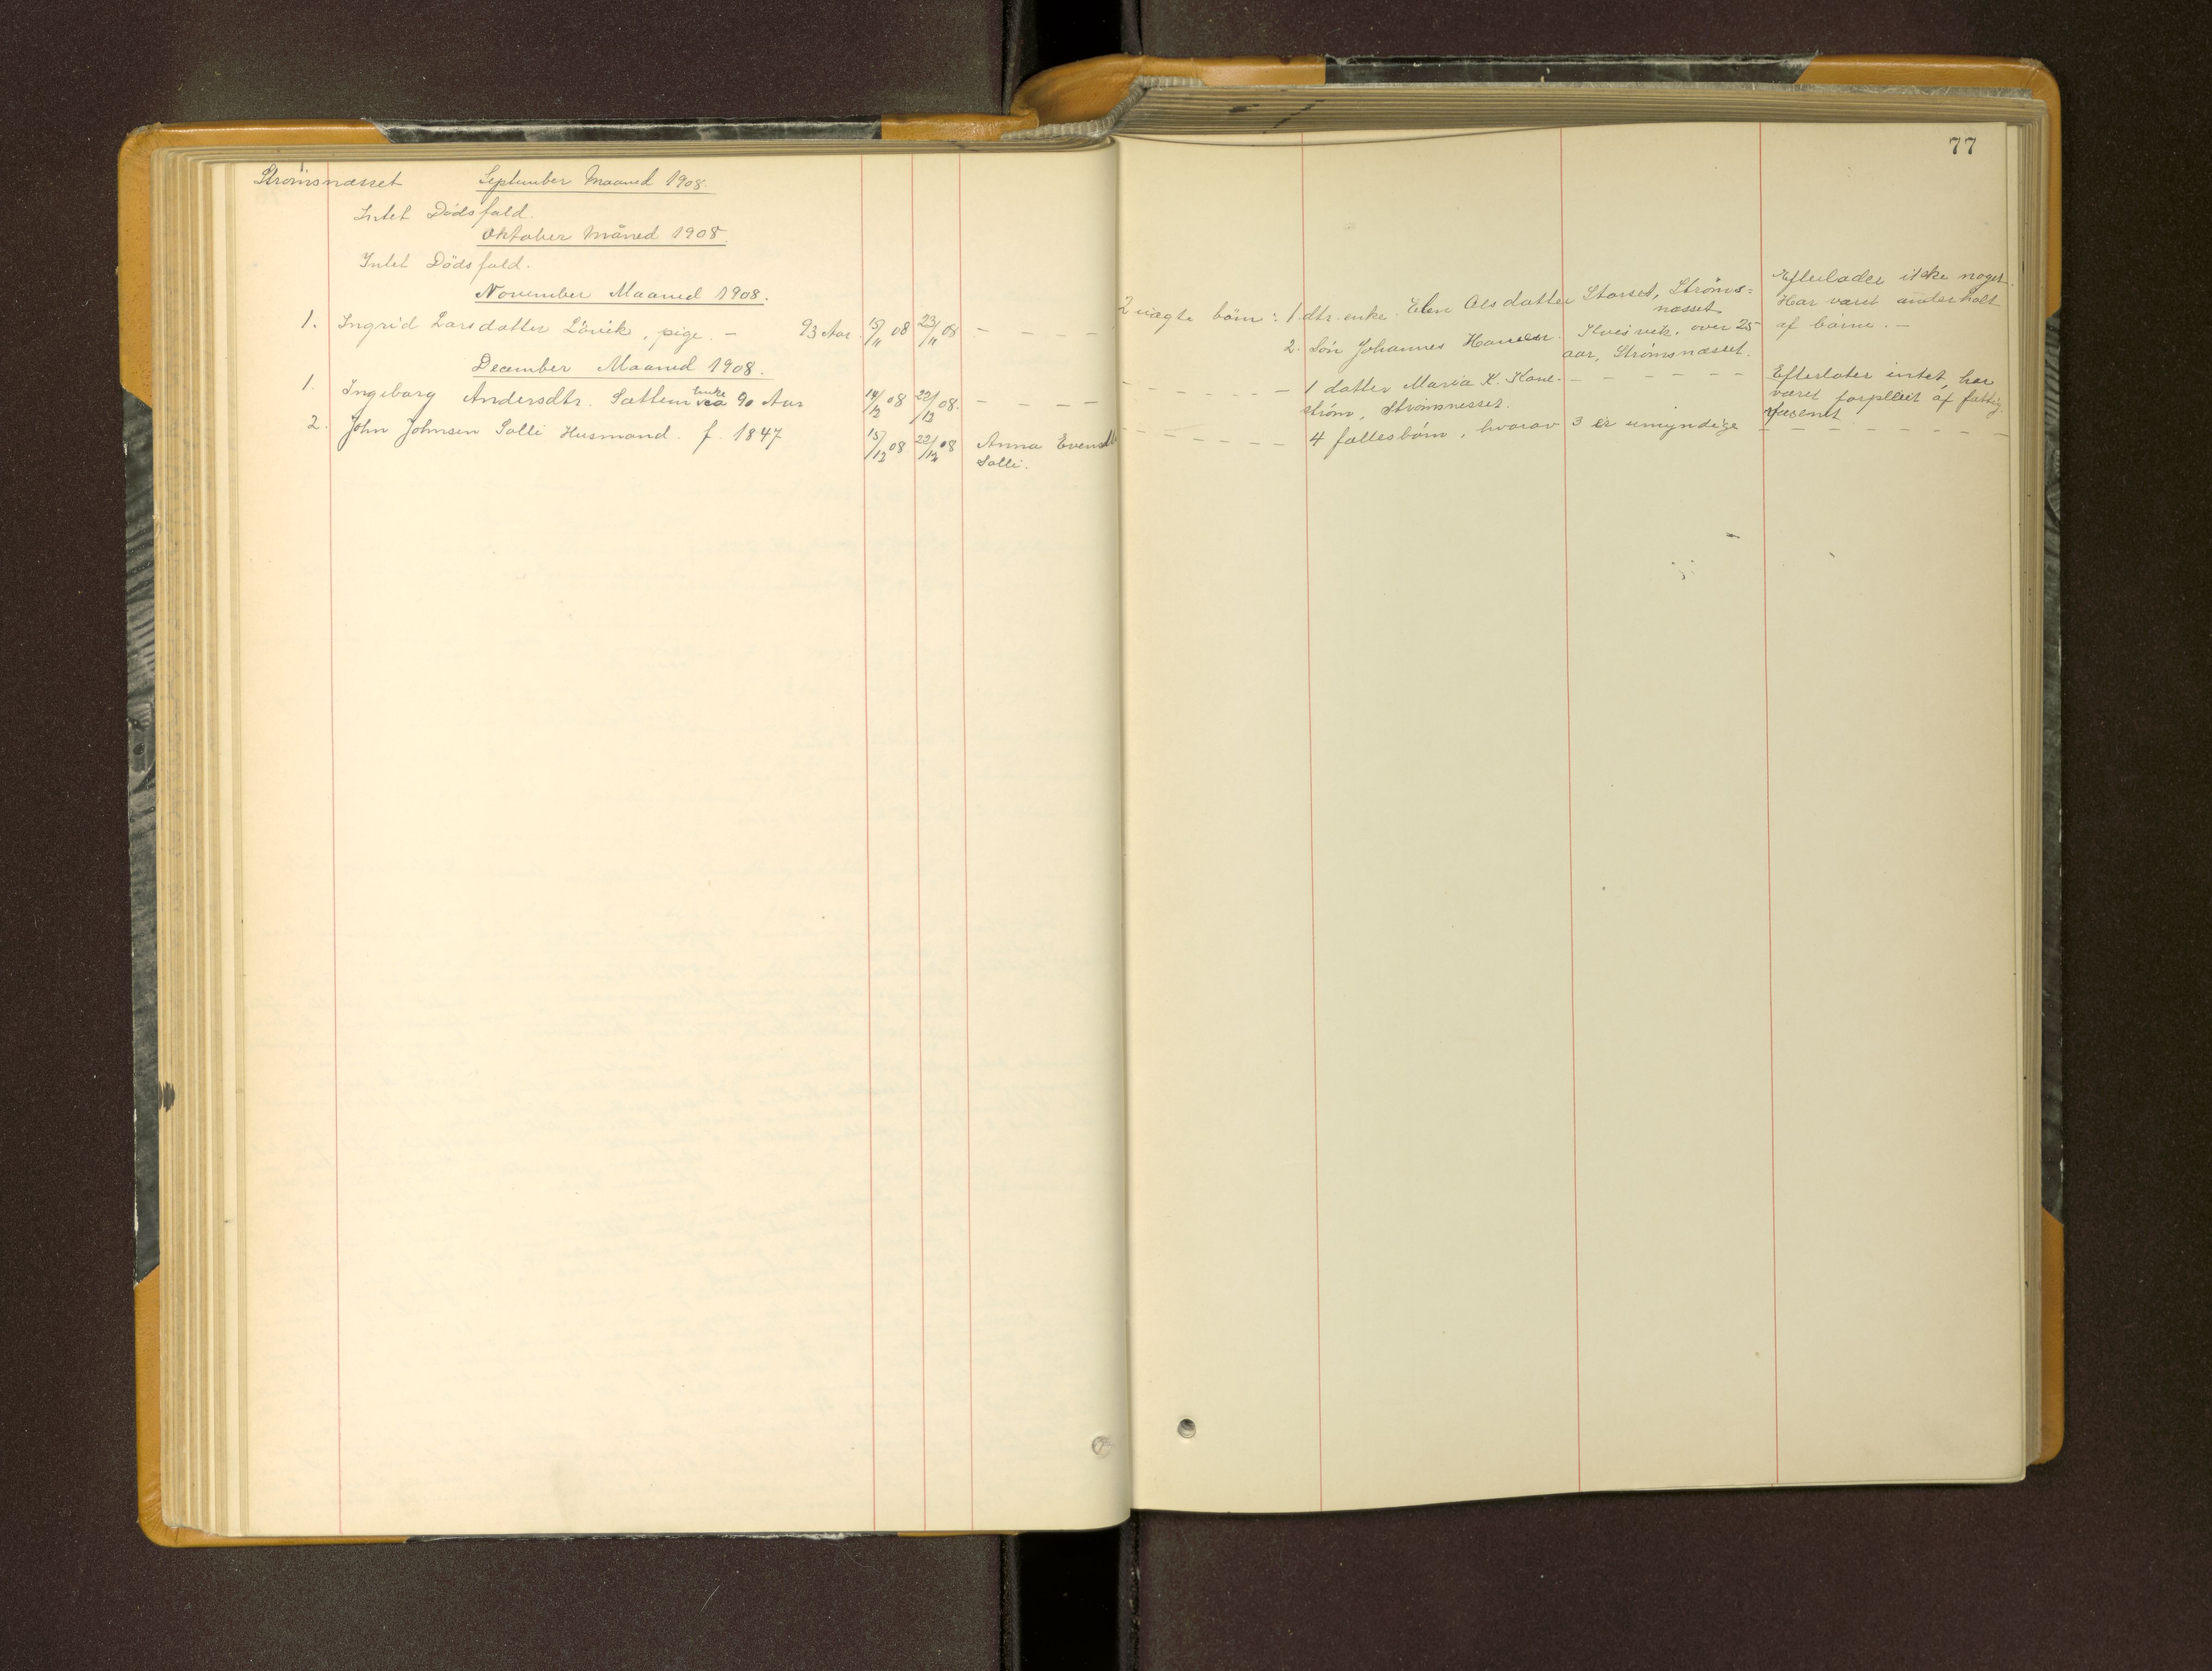 77
Strömsnæsset September Maaned 1908.
Intet Dödsfald.
Oktober Måned 1908.
Intet Dödsfald.
November Maaned 1908.
1. Ingrid Larsdatter Lövik, pige. – 93 Aar. 15/11 08 23/11 08 – – – – 2 uægte börn: 1. dtr. enke. Elen Olsdatter Storset, Ströms=
næsset
2. Sön Johannes Hansen. Ilvesvik. over 25
aar, Strömsnæsset.
Efterlader ikke noget.
Har været underholt
af börne. –
December Maaned 1908.
1. Ingeborg Andersdtr. Sættem enke 90 Aar 14/12 08 22/12 08. – – – – – – – – – 1 datter Maria K. Kane- – – – – – –
ström, Strömsnesset.
Efterlater intet, har
været forpleiet af fattig
væsenet
2. John Johnsen Solli Husmand. f. 1847 15/12 08 22/12 08 Anna Evensdtr – – – – – – 4 fællesbörn, hvorav 3 er umyndige – – – – – –
Solli.